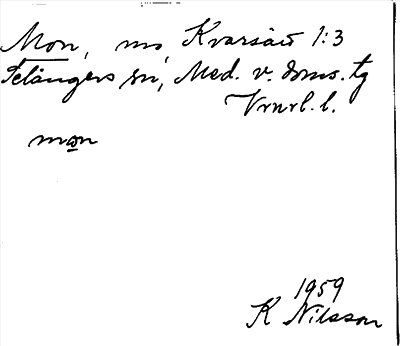 Mon, mo, Kvarsätt 1:3
Selångers sn, Med. v. doms. tg
Vrnrl. l.
mon
1959
K Nilsson